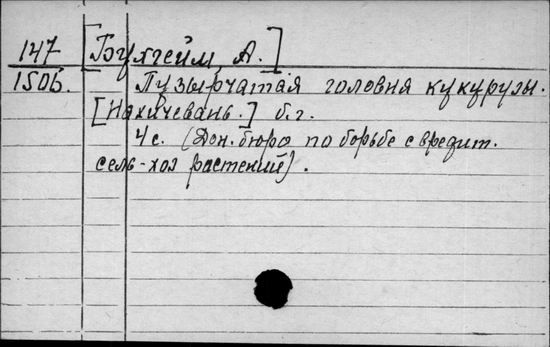 147 [Бухгейм, А.]
1506. Пузырчатая головня кукурузы.
[Нахичевань.] б.г.
4 с. (Дон. бюро по борьбе с вредит.
сель-хоз растений).